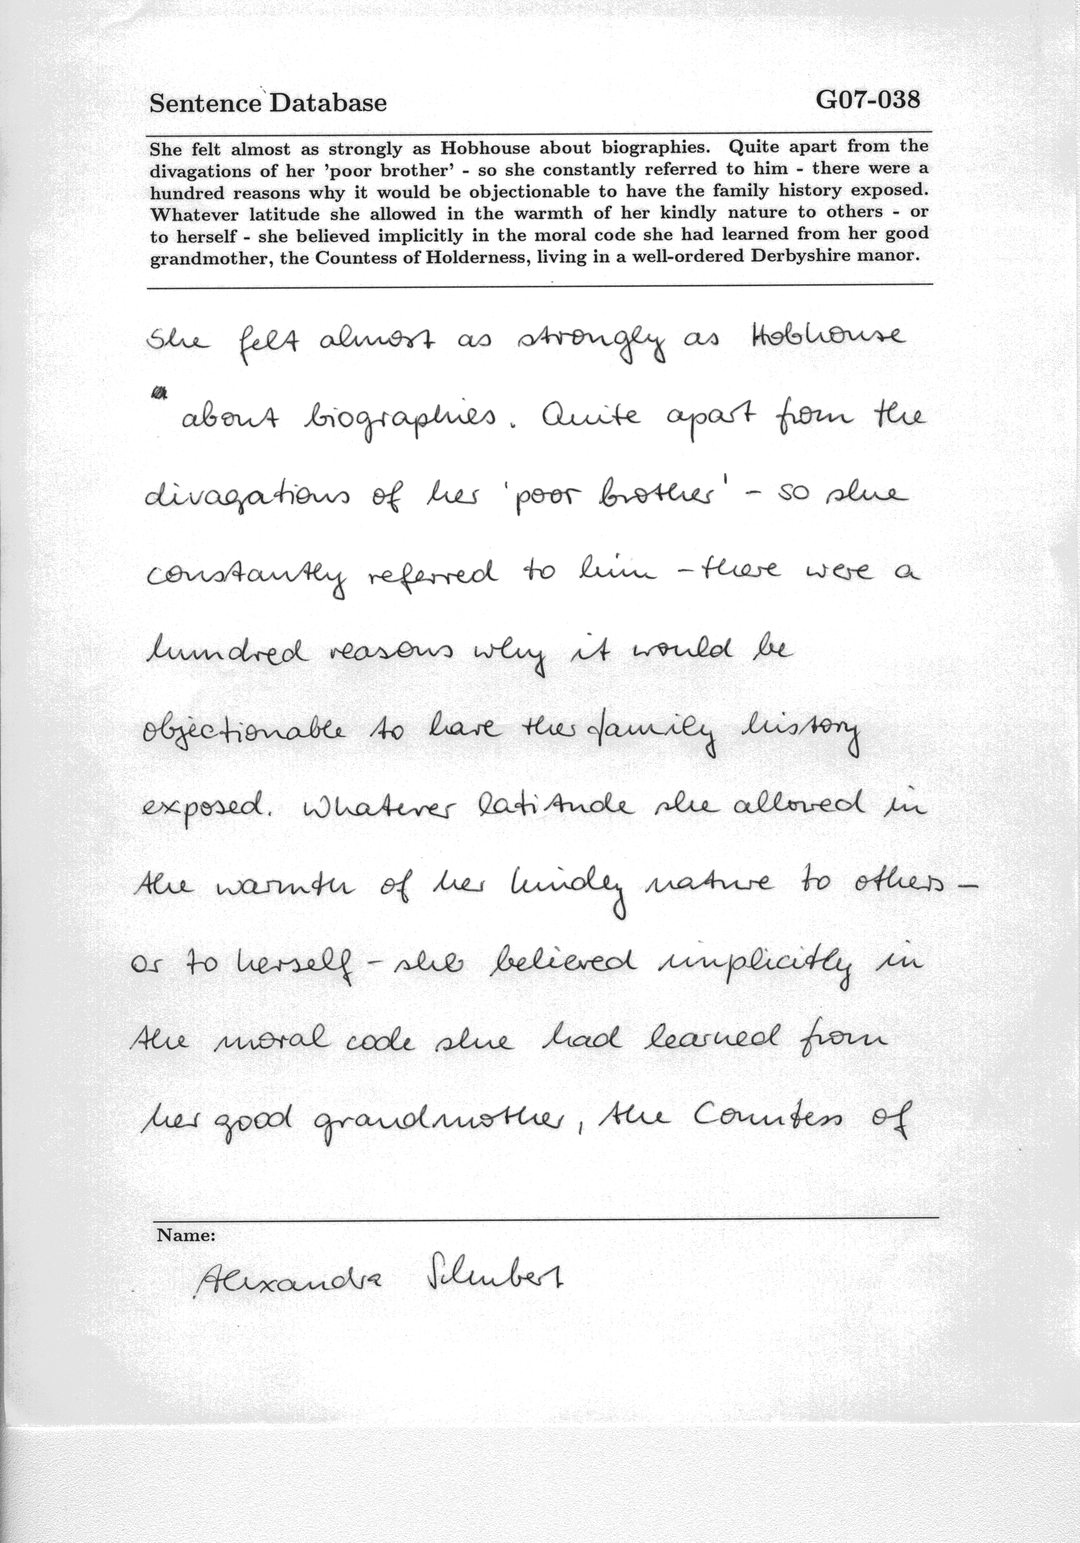 Sentence Database G07-038
She felt almost as strongly as Hobhouse about biographies. Quite apart from the
divagations of her 'poor brother' - so she constantly referred to him - there were a
hundred reasons why it would be objectionable to have the family history exposed.
Whatever latitude she allowed in the warmth of her kindly nature to others - or
to herself - she believed implicitly in the moral code she had learned from her good
grandmother, the Countess of Holderness, living in a well-ordered Derbyshire manor.
She felt almost as strongly as Hobhouse
about biographies. Quite apart from the
divagations of her 'poor brother' - so she
constantly referred to him - there were a
hundred reasons why it would be
objectionable to have the family history
exposed. Whatever latitude she allowed in
the warmth of her kindly nature to others -
or to herself - she believed implicitly in
the moral code she had learned from
her good grandmother, the Countess of
Name:
Alexandra Schubert